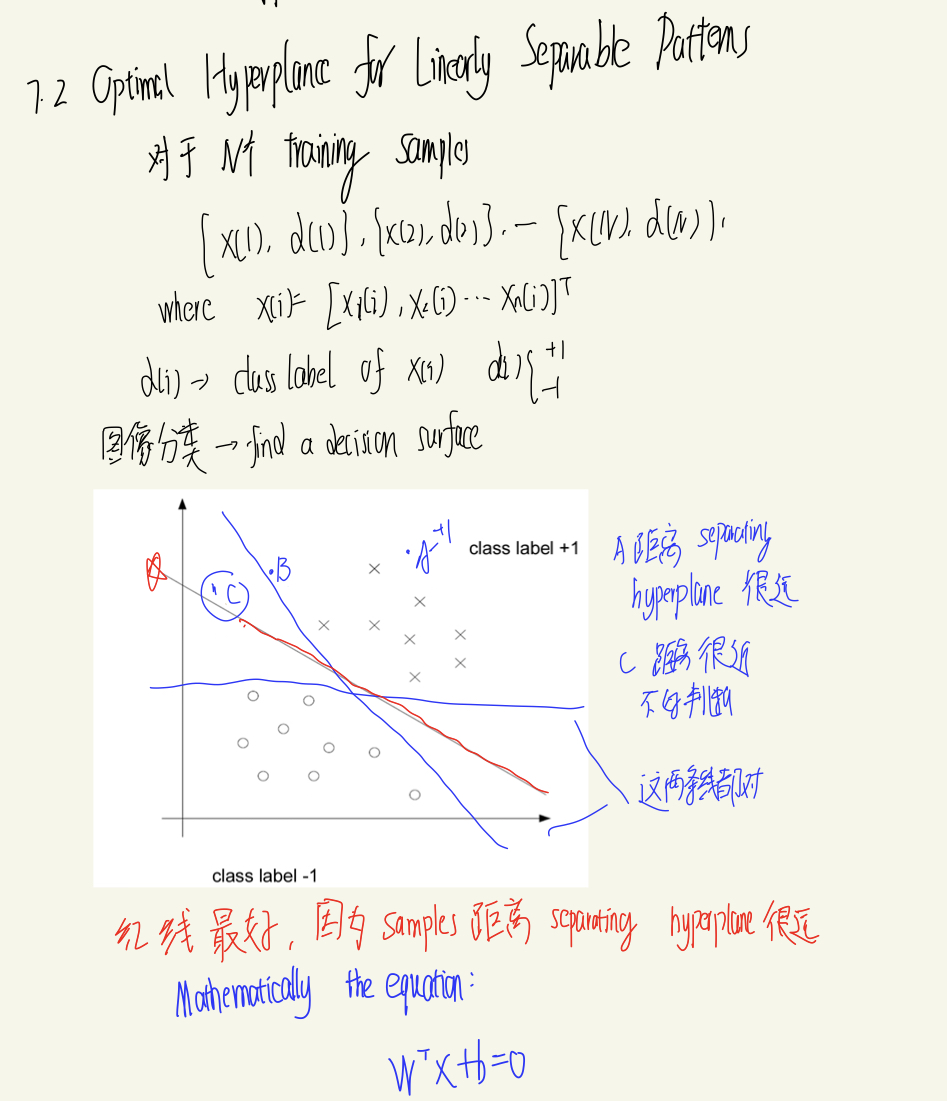 7.2 Optimal Hyperplane for Linearly Separable Patterns
对于 N个 training samples
{x(1), d(1)}, {x(2), d(2)}, … {x(N), d(N)},
where x(i)= [x₁(i), x₂(i) ··· xₙ(i)]ᵀ
d(i) → class label of x(i) d(i) { +1 -1
图像分类 → find a decision surface
A +1
class label +1
B
C
A 距离 separating
hyperplane 很远
C 距离很近
不好判断
这两条线都对
class label -1
红线最好, 因为 samples 距离 separating hyperplane 很远
Mathematically the equation:
Wᵀx+b=0